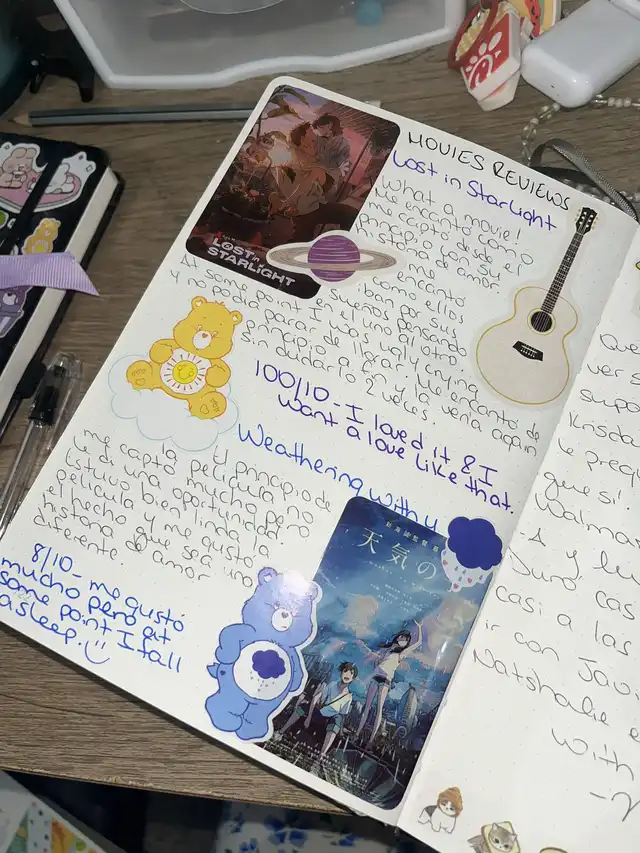 MOVIES REVIEWS
Lost in Starlight
What a movie!
Me encantó como
me captó desde el
principio con su
historia de amor
me encantó
como ellos
iban por sus
sueños pensando
en el uno al otro
At some point I was ugly crying
y no podía parar de llorar. Me encantó de
principio a fin y la vería again
sin dudarlo 2 veces.
100/10 - I loved it & I
want a love like that.
LOST in
STARLIGHT
Weathering with u
la y principio de
me captó la película no
le di una mucho pero
estuvo oportunidad
película bien linda la
el hecho y me gustó
historia que sea uno
diferente. de amor
8/10 - me gustó
mucho pero at
some point I fall
asleep.
天気の
Que
ver s
supo
le preg
que sí.
Walmar
A y lu
Duró cas
casi a las
ir con Jav
Natshalie e
with